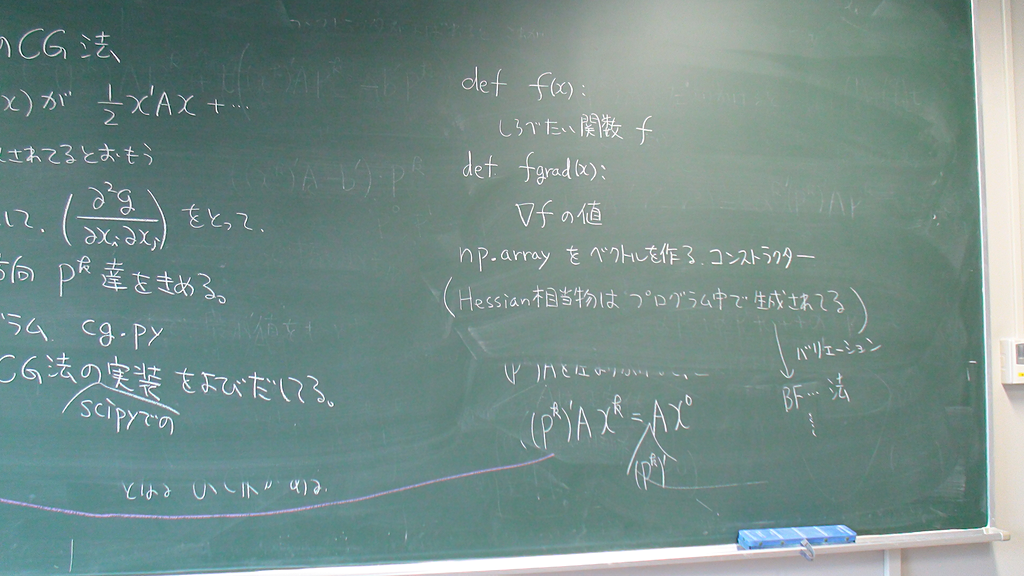 のCG法
x)が 1/2 x'Ax + …
されてるとおもう
して、(∂²g/∂xi∂xj) をとって、
方向 p^k 達をきめる。
ラム cg.py
CG法の実装をよびだしてる。
scipyでの
def f(x):
しらべたい関数 f
def fgrad(x):
∇fの値
np.array をベクトルを作る、コンストラクター
(Hessian相当物はプログラム中で生成されてる)
バリエーション
BF… 法
⋮
(p^k)'A x^k = A x^0
(p^k)'